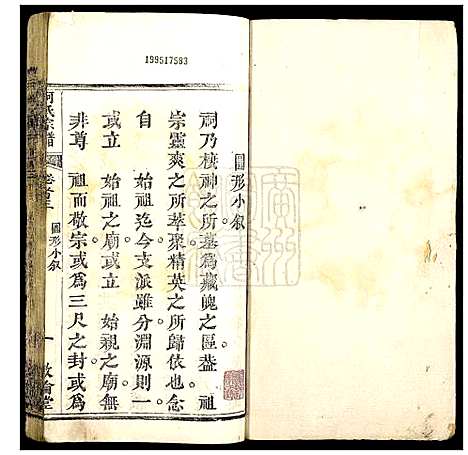 199517583
圖形小叙
祠乃棲神之所墓爲藏魄之區葢　祖
宗靈爽之所萃聚精英之所歸依也念
自　始祖迄今支派雖分淵源則一
或立　始祖之廟或立　始親之廟無
非尊　祖而敬宗或爲三尺之封或爲
氏宗譜
卷之
圖形小叙
一
敘倫堂